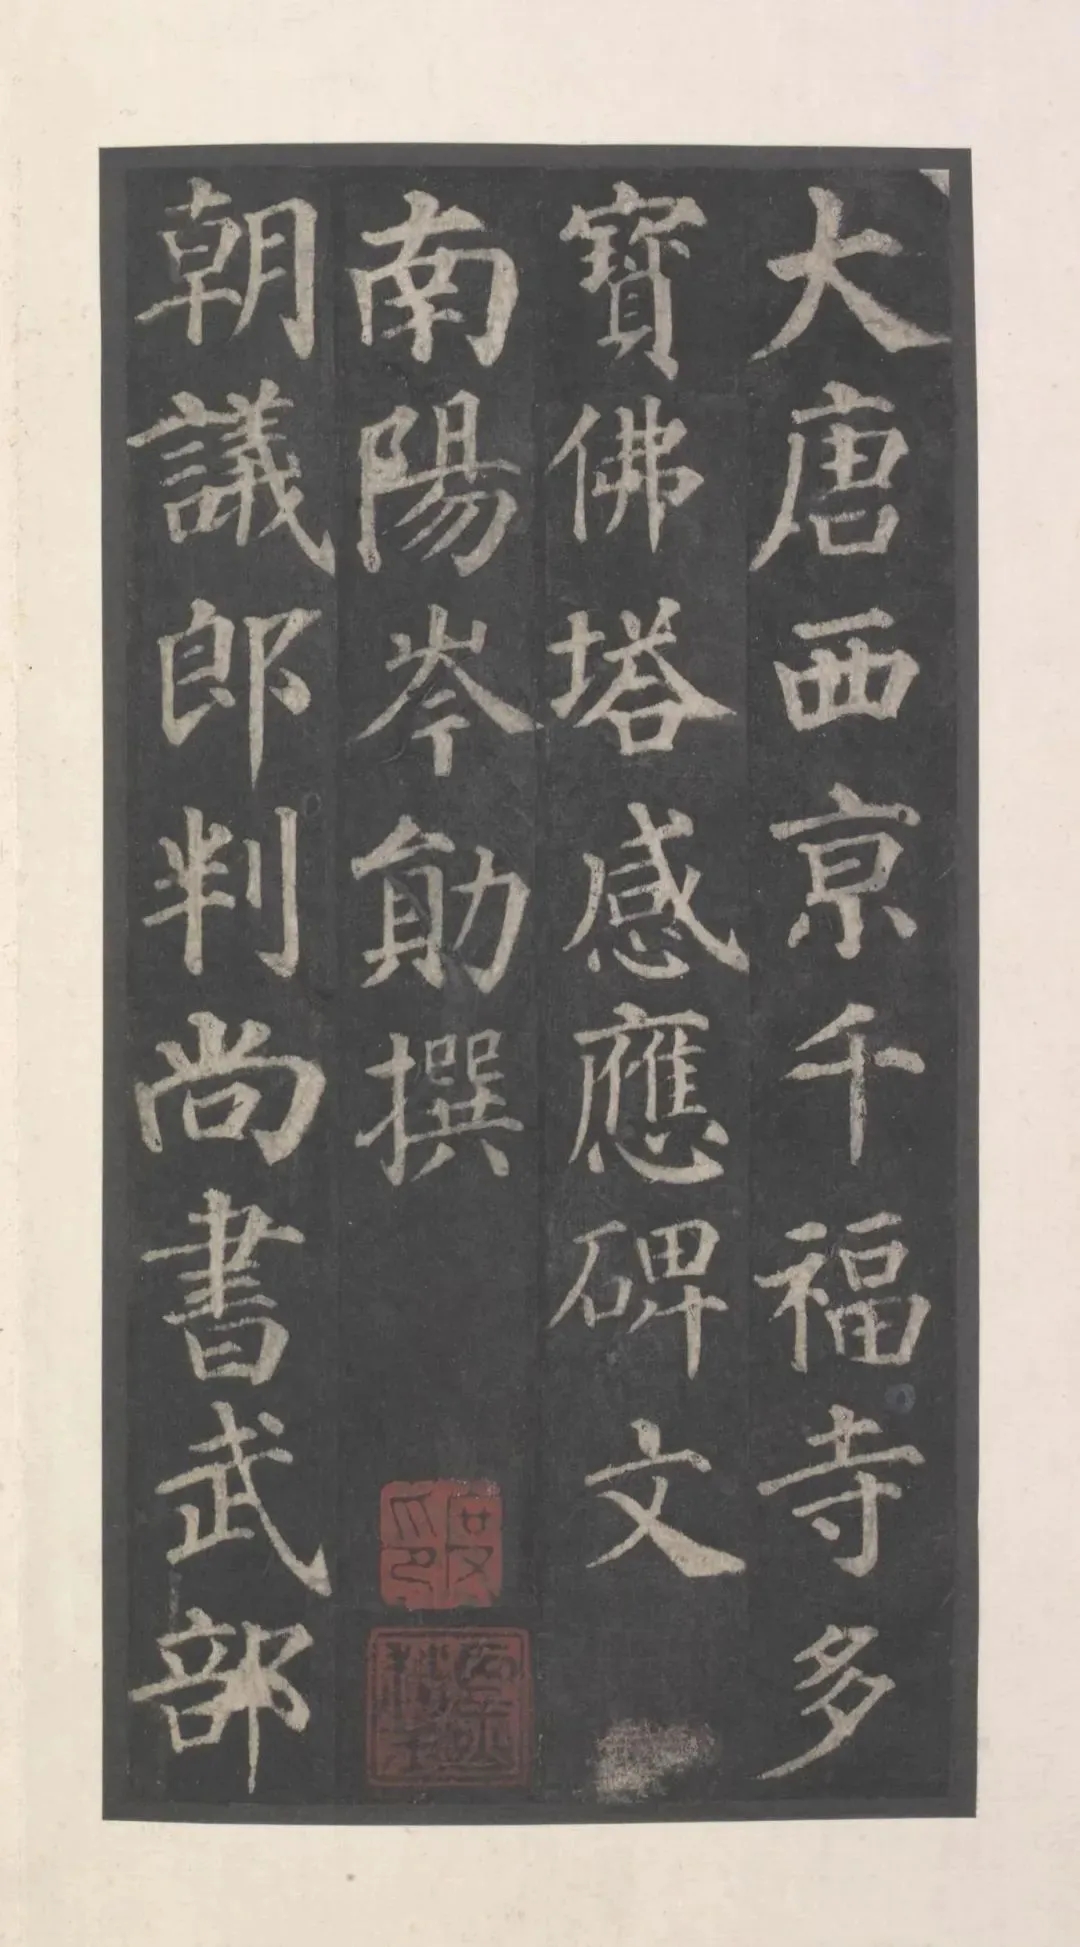 大唐西亰千福寺多
寶佛塔感應碑文
南陽岑勛撰
朝議郎判尚書武部